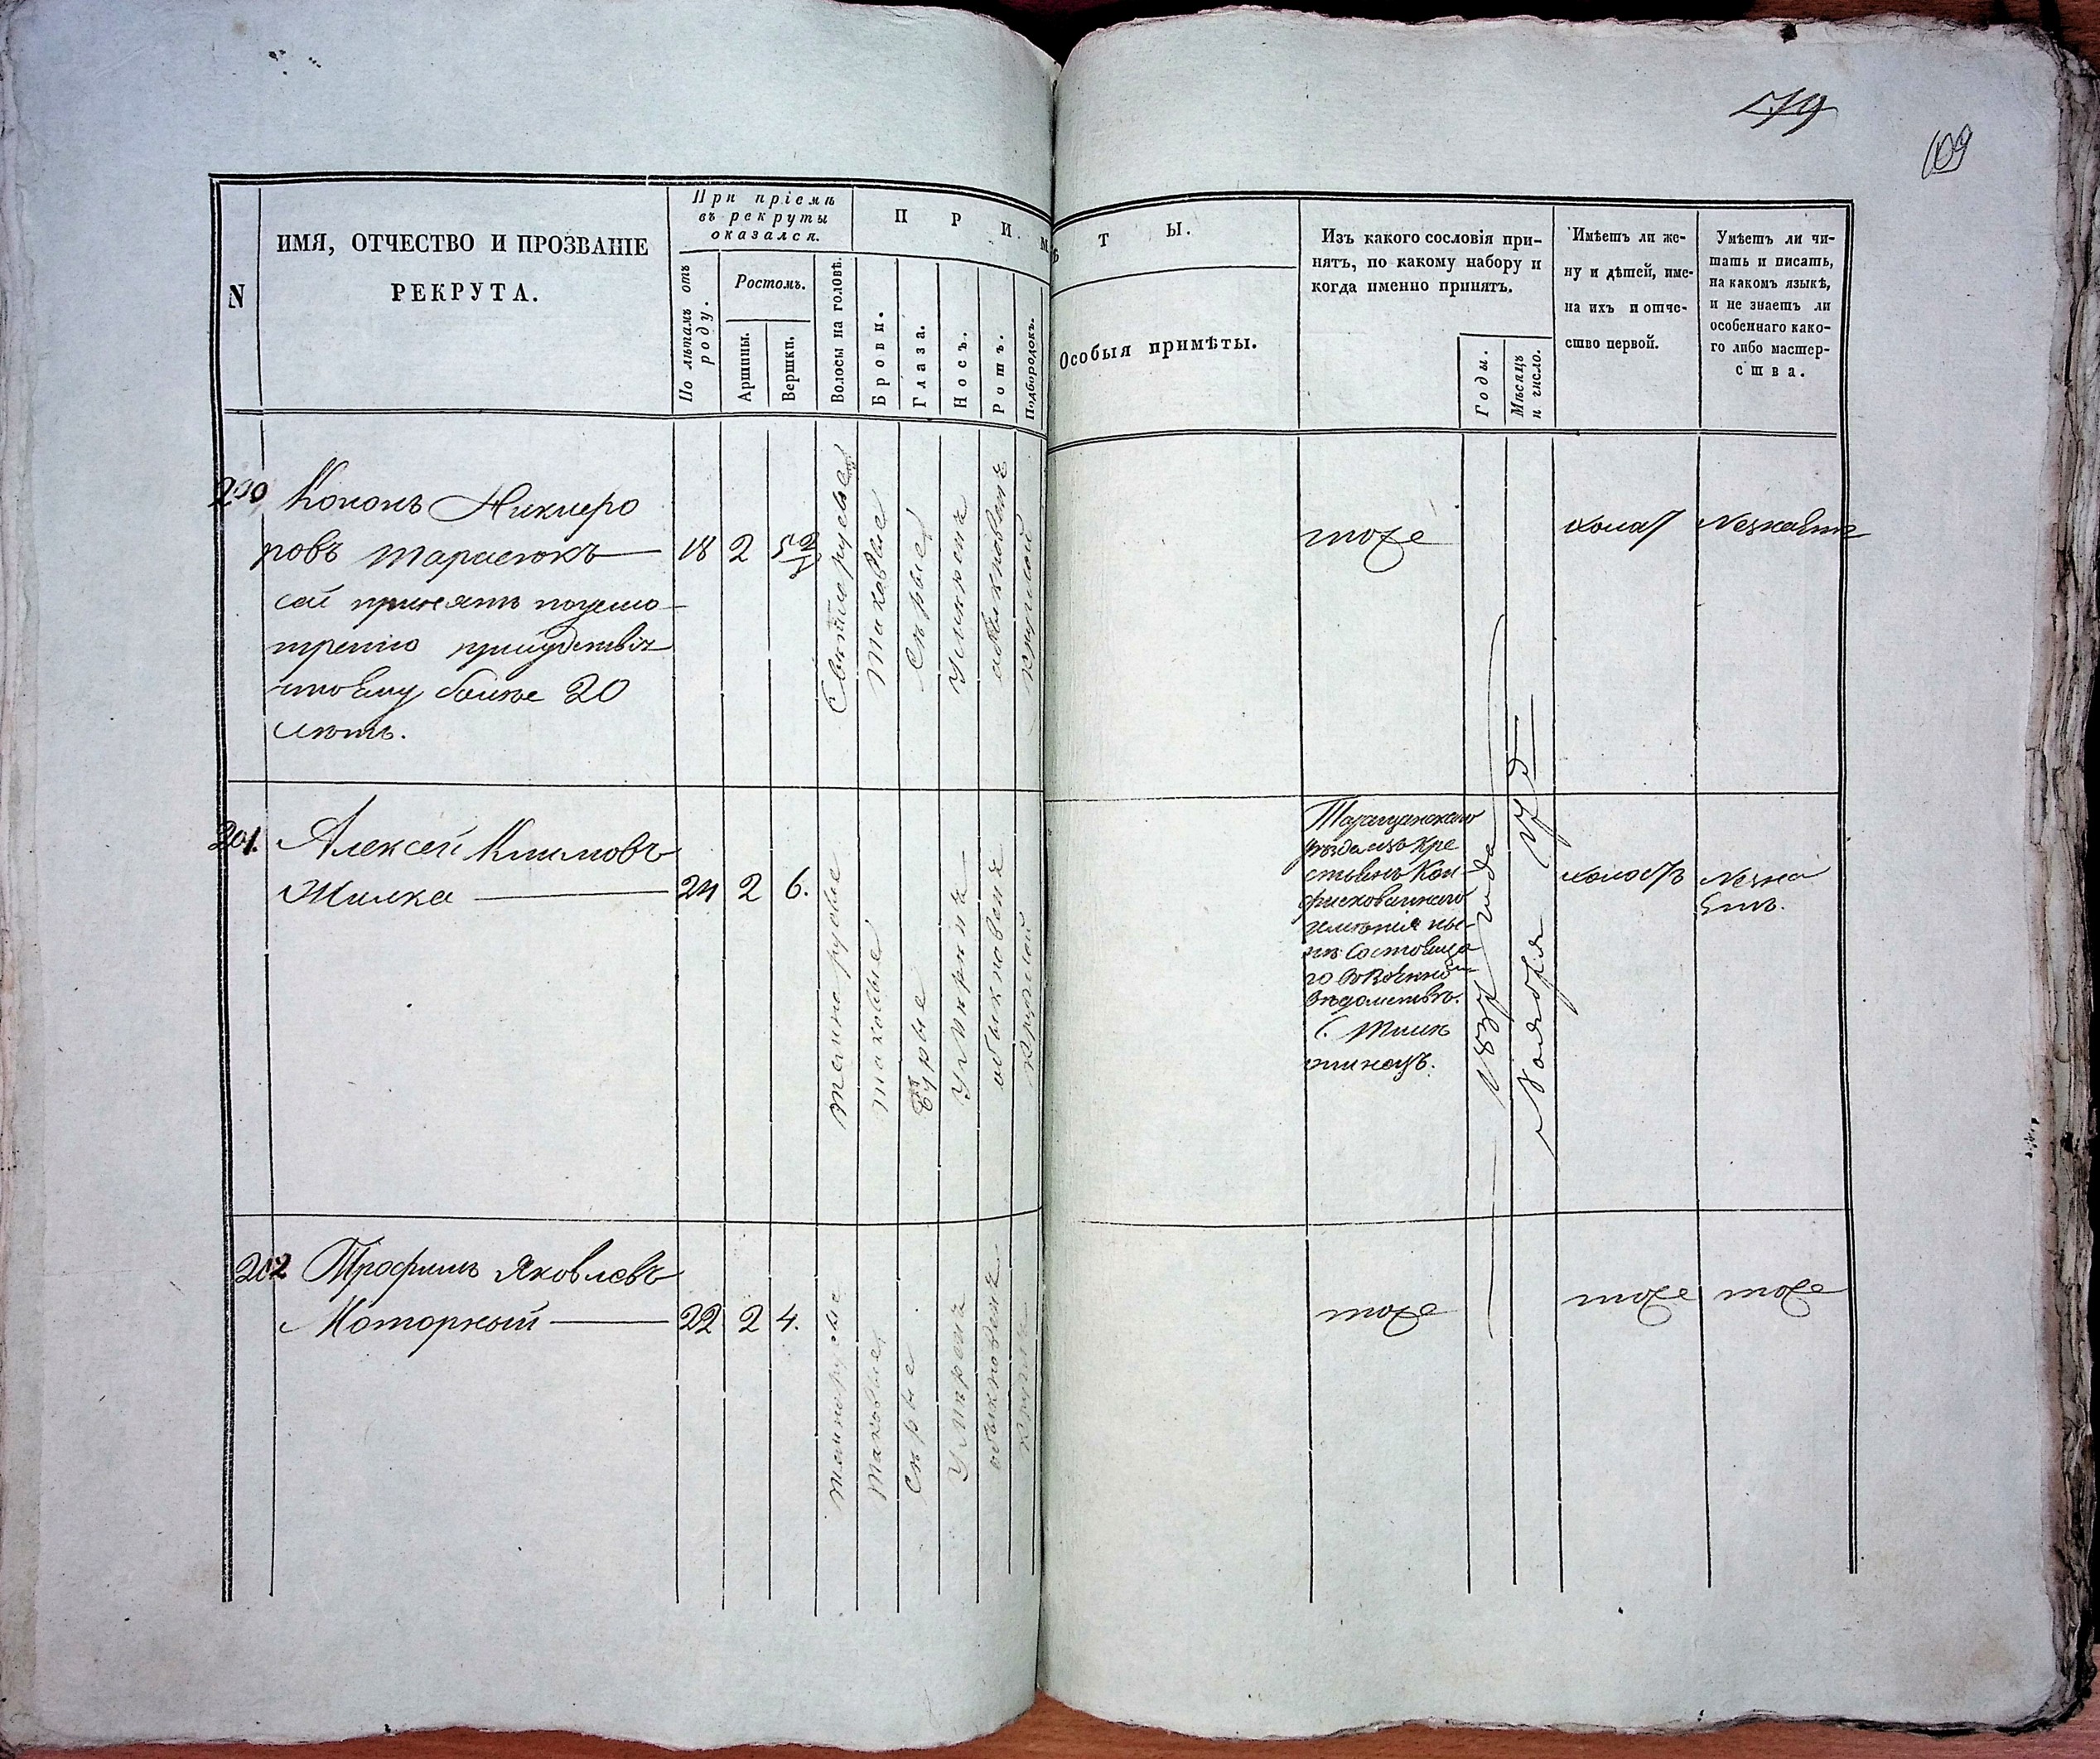 109
N
ИМЯ, ОТЧЕСТВО И ПРОЗВАНІЕ
РЕКРУТА.
При пріемѣ
въ рекруты
оказался.
По лѣтамъ отъ
роду.
Ростомъ.
Аршины.
Вершки.
П Р И М
Волосы на головѣ.
Брови.
Глаза.
Носъ.
Ротъ.
Подбородокъ.
Ѣ Т Ы.
Особыя примѣты.
Изъ какого сословія при-
нятъ, по какому набору и
когда именно принятъ.
Годы.
Мѣсяцъ
и число.
Имѣетъ ли же-
ну и дѣтей, име-
на ихъ и отче-
ство первой.
Умѣетъ ли чи-
тать и писать,
на какомъ языкѣ,
и не знаетъ ли
особеннаго како-
го либо мастер-
ства.
200
Кононъ Никиеро
ровъ Тарасюкъ
сей принятъ
присудствія
20
лѣтъ.
18
2
5
Свѣтлорусые
таковые
сѣрые
умѣренъ
обыкновенъ
круглой
тоже
холос
Незнаетъ
201.
Алексей Климовъ
Жилка
24
2
6.
темнорусые
таковые
сѣрые
умѣренъ
обыкновенъ
круглой
Таращанскаго
уѣзда изъ кре
стьянъ Кон-
фискованнаго
имѣнія ны-
нѣ Состояща
го въ Военномъ
Вѣдомствѣ.
1837 года
Ноября 17 д
холостъ
Незна
етъ.
202
Трофимъ Яковлевъ
Моторный
22
2
4.
темнорусые
таковые
сѣрые
умѣренъ
обыкновенъ
круглъ
тоже
тоже
тоже